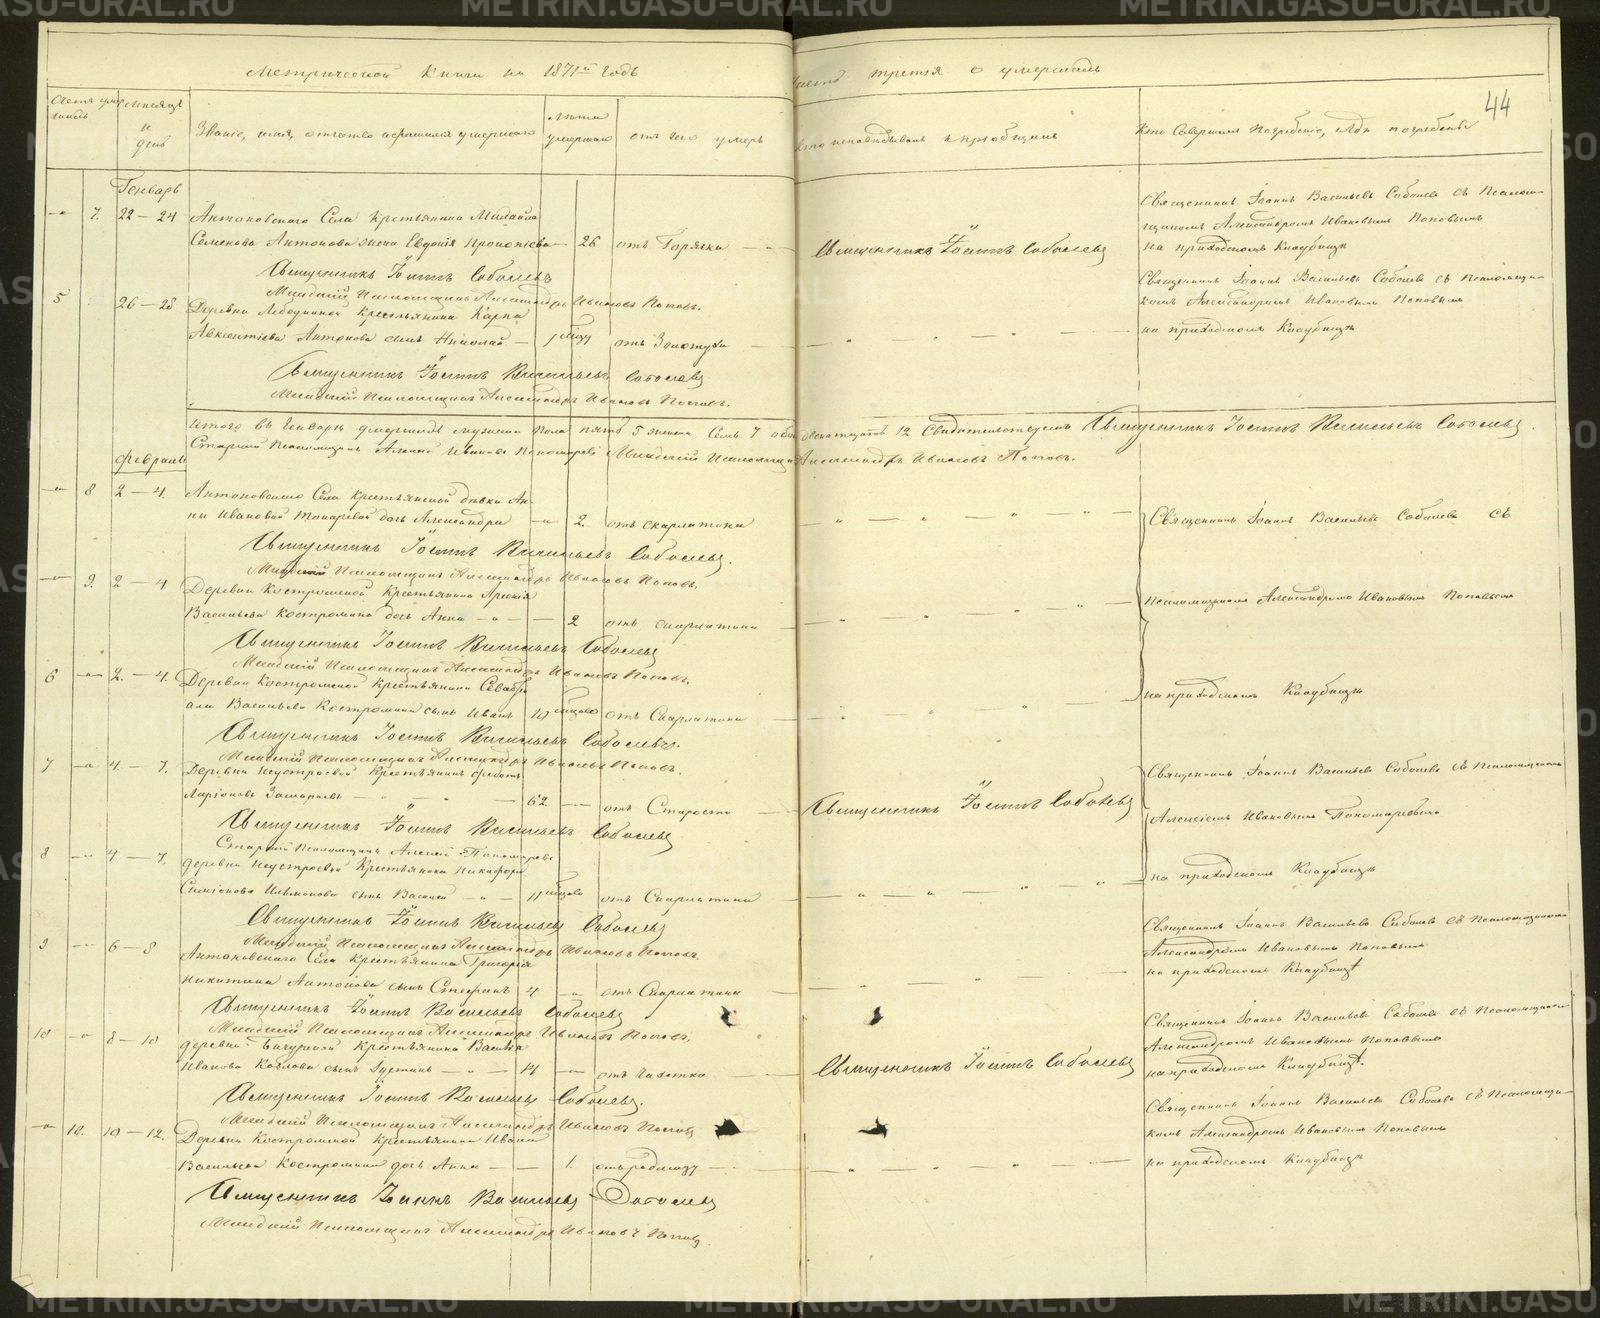 METRIKI.GASU-URAL.RU
Метрической Книги на 1871й годъ
Часть третья о умершихъ
44
Счетъ умершихъ
Месяцъ и день
Званіе, имя, отчество и фамилія умершаго
Лѣта умершаго
отъ чего умеръ
Кто исповѣдывалъ и пріобщалъ
Кто совершалъ погребеніе, и гдѣ погребены
Генварь
7. 22 — 24
Антоновскаго Села Крестьянина Михаила
Семенова Антонова жена Евдокія Прокопіева — 26 отъ Горячки
Священникъ Іоаннъ Соболевъ
Священникъ Іоаннъ Васильевъ Соболевъ съ Псаломщикомъ Александромъ Ивановымъ Поповымъ
на приходскомъ Кладбищѣ
Младшій Псаломщикъ Александръ Ивановъ Поповъ.
5 26 — 28
Крестьянина Карпа
Авксентіева Антонова сынъ Николай — отъ Золотухи
Священникъ Іоаннъ Васильевъ Соболевъ съ Псаломщикомъ Александромъ Ивановымъ Поповымъ
на приходскомъ Кладбищѣ
Священникъ Іоаннъ Васильевъ Соболевъ
Младшій Псаломщикъ Александръ Ивановъ Поповъ.
Итого въ Генварѣ умершихъ мужеска пола пять 5 женска Семь 7 обоего двенатцать 12 Свидѣтельствуемъ Священникъ Іоаннъ Васильевъ Соболевъ.
Старшій Псаломщикъ Алексѣй Ивановъ Пономаревъ Младшій Псаломщикъ Александръ Ивановъ Поповъ.
Февраль
8 2 — 4.
Антоновскаго Села Крестьянской дѣвки Анны Ивановой дочь Александра — 2. отъ скарлатины
Священникъ Іоаннъ Васильевъ Соболевъ съ
Священникъ Іоаннъ Васильевъ Соболевъ.
Младшій Псаломщикъ Александръ Ивановъ Поповъ.
9. 2 — 4
Деревни Костроминой Крестьянина
Васильева Костромина дочь Анна — 2 отъ скарлатины
Псаломщикомъ Александромъ Ивановымъ Поповымъ
Священникъ Іоаннъ Васильевъ Соболевъ
Младшій Псаломщикъ Александръ Ивановъ Поповъ.
6 2. — 4.
Деревни Костроминой Крестьянина
Васильева Костромина сынъ Иванъ 10 мѣсяцовъ отъ Скарлатины
на приходскомъ Кладбищѣ
Священникъ Іоаннъ Васильевъ Соболевъ.
Младшій Псаломщикъ Александръ Ивановъ Поповъ.
7 4. — 7.
Деревни Неустроевой Крестьянинъ
Ларіоновъ — 62 — отъ Старости
Священникъ Іоаннъ Соболевъ
Священникъ Іоаннъ Васильевъ Соболевъ съ Псаломщикомъ
Алексѣемъ Ивановымъ Пономаревымъ
на приходскомъ Кладбищѣ
Священникъ Іоаннъ Васильевъ Соболевъ
Старшій Псаломщикъ Алексѣй Пономаревъ
8 4 — 7.
деревни Неустроевой Крестьянина Никифора
сынъ Василій — 11 мѣсяцовъ отъ Скарлатины
Священникъ Іоаннъ Васильевъ Соболевъ
Младшій Псаломщикъ Александръ Ивановъ Поповъ.
9 6 — 8
Антоновскаго Села Крестьянина Григорія
Никитина Антонова сынъ Стефанъ 4 — отъ Скарлатины
Священникъ Іоаннъ Васильевъ Соболевъ съ Псаломщикомъ
Александромъ Ивановымъ Поповымъ
на приходскомъ Кладбищѣ
Священникъ Іоаннъ Васильевъ Соболевъ
Младшій Псаломщикъ Александръ Ивановъ Поповъ.
10 8 — 10
деревни Крестьянина
Иванова Козлова сынъ Іустинъ — 14 — отъ чахотки
Священникъ Іоаннъ Соболевъ
Священникъ Іоаннъ Васильевъ Соболевъ съ Псаломщикомъ
Александромъ Ивановымъ Поповымъ
на приходскомъ Кладбищѣ.
Священникъ Іоаннъ Васильевъ Соболевъ.
Младшій Псаломщикъ Александръ Ивановъ Поповъ
10. 10 — 12.
Деревни Костроминой Крестьянина Ивана
Васильева Костромина дочь Анна — 1. отъ родимцу
Священникъ Іоаннъ Васильевъ Соболевъ съ Псаломщикомъ Александромъ Ивановымъ Поповымъ
на приходскомъ Кладбищѣ
Священникъ Іоаннъ Васильевъ Соболевъ
Младшій Псаломщикъ Александръ Ивановъ Поповъ.
METRIKI.GASU-URAL.RU